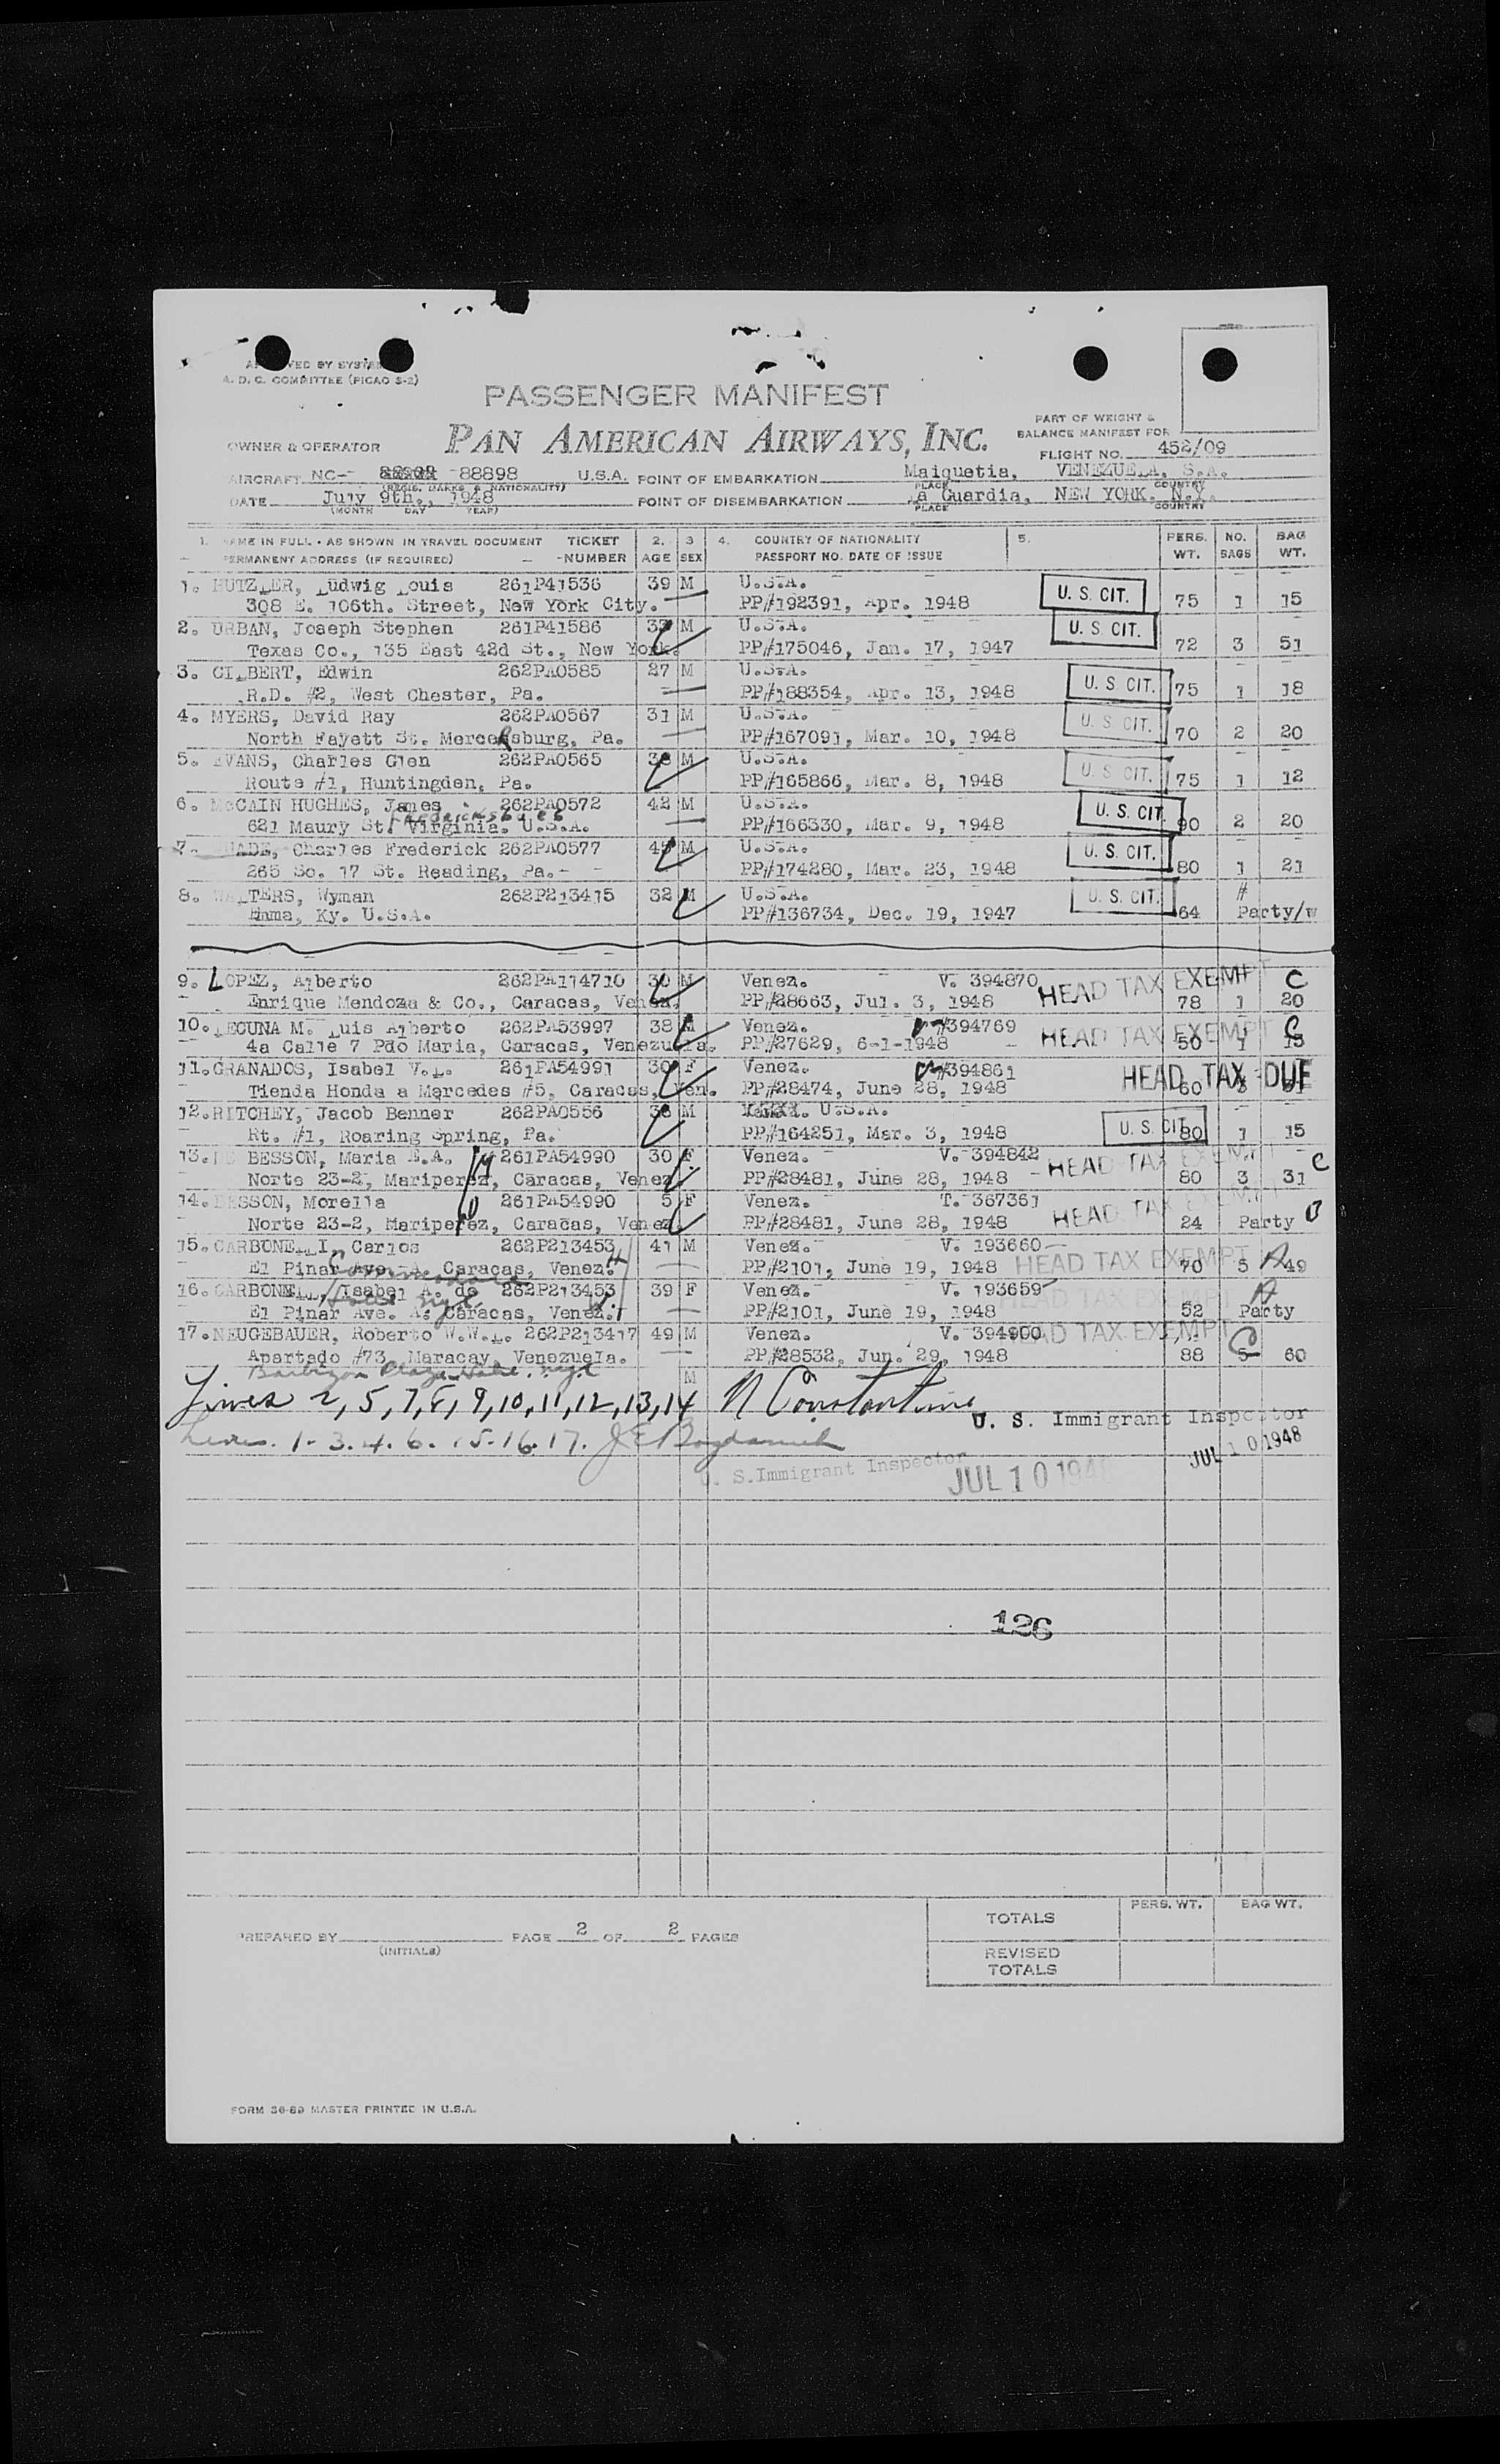 APPROVED BY SYSTEM
A. D. C. COMMITTEE (PICAO S-2)
PASSENGER MANIFEST
PART OF WEIGHT &
BALANCE MANIFEST FOR
OWNER & OPERATOR PAN AMERICAN AIRWAYS, INC. FLIGHT NO. 452/09
AIRCRAFT NC- 88898 U.S.A. POINT OF EMBARKATION Maiquetia, VENEZUELA, S.A.
(REGIS. MARKS & NATIONALITY) PLACE COUNTRY
DATE July 9th., 1948 POINT OF DISEMBARKATION La Guardia, NEW YORK. N.Y.
(MONTH DAY YEAR) PLACE COUNTRY
1. NAME IN FULL - AS SHOWN IN TRAVEL DOCUMENT TICKET 2. 3 4. COUNTRY OF NATIONALITY 5. PERS. NO. BAG
PERMANENT ADDRESS (IF REQUIRED) - -NUMBER AGE SEX PASSPORT NO. DATE OF ISSUE WT. BAGS WT.
1. HUTZLER, Ludwig Louis 261P41536 39 M U.S.A.
308 E. 106th. Street, New York City. PP#192391, Apr. 1948 U. S. CIT. 75 1 15
2. URBAN, Joseph Stephen 261P41586 M U.S.A. U. S. CIT.
Texas Co., 135 East 42d St., New York. PP#175046, Jan. 17, 1947 72 3 51
3. GILBERT, Edwin 262PA0585 27 M U.S.A.
R.D. #2, West Chester, Pa. PP#188354, Apr. 13, 1948 U. S. CIT. 75 1 18
4. MYERS, David Ray 262PA0567 31 M U.S.A. U. S. CIT.
North Fayett St. Mercersburg, Pa. PP#167091, Mar. 10, 1948 70 2 20
5. EVANS, Charles Glen 262PA0565 38 M U.S.A. U. S. CIT.
Route #1, Huntingden, Pa. PP#165866, Mar. 8, 1948 75 1 12
6. McCAIN HUGHES, James 262PA0572 42 M U.S.A. U. S. CIT.
Fredericksburg
621 Maury St. Virginia. U.S.A. PP#166330, Mar. 9, 1948 90 2 20
7. Charles Frederick 262PA0577 M U.S.A. U. S. CIT.
265 So. 17 St. Reading, Pa.- - PP#174280, Mar. 23, 1948 80 1 21
8. WALTERS, Wyman 262P213415 32 M U.S.A. U. S. CIT. #
Emma, Ky. U.S.A. PP#136734, Dec. 19, 1947 64 Party/w
9. LOPEZ, Alberto 262PA114710 30 M Venez. V. 394870 HEAD TAX EXEMPT C
Enrique Mendoza & Co., Caracas, Venez. PP#28663, Jul. 3, 1948 78 1 20
10. LECUNA M. Luis Alberto 262PA53997 38 M Venez. V-#394769 HEAD TAX EXEMPT C
4a Calle 7 Pdo Maria, Caracas, Venezuela. PP#27629, 6-1-1948 50 1
11. GRANADOS, Isabel V.L. 261PA54991 30 F Venez. V-#394861 HEAD TAX DUE
Tienda Honda a Mercedes #5, Caracas, Ven. PP#28474, June 28, 1948 60
12. RITCHEY, Jacob Benner 262PA0556 38 M U.S.A.
Rt. #1, Roaring Spring, Pa. PP#164251, Mar. 3, 1948 U. S. CIT. 80 1 15
13. DE BESSON, Maria E.A. 261PA54990 30 F Venez. V. 394842 HEAD TAX EXEMPT C
Norte 23-2, Mariperez, Caracas, Venez. PP#28481, June 28, 1948 80 3 31
14. BESSON, Morella 261PA54990 5 F Venez. T. 367361 HEAD TAX EXEMPT
Norte 23-2, Mariperez, Caracas, Venez. PP#28481, June 28, 1948 24 Party
15. CARBONELL I, Carlos 262P213453 41 M Venez. V. 193660 HEAD TAX EXEMPT A
El Pinar Ave. A, Caracas, Venez. PP#2101, June 19, 1948 70 5 49
16. CARBONELL, Isabel A. de 262P213453 39 F Venez. V. 193659 HEAD TAX EXEMPT A
El Pinar Ave. A. Caracas, Venez. PP#2101, June 19, 1948 52 Party
17. NEUGEBAUER, Roberto W.W.L. 262P213417 49 M Venez. V. 394900 HEAD TAX EXEMPT C
Apartado #73, Maracay, Venezuela. PP#28532, Jun. 29, 1948 88 60
Barbizon Plaza Hotel. nyc M
Lines 2, 5, 7, 8, 9, 10, 11, 12, 13, 14 N Constantine U. S. Immigrant Inspector
JUL 10 1948
Lines. 1. 3. 4. 6. 15. 16. 17.
U. S. Immigrant Inspector JUL 10 1948
126
TOTALS PERS. WT. BAG WT.
PREPARED BY PAGE 2 OF 2 PAGES
(INITIALS)
REVISED
TOTALS
FORM 36-89 MASTER PRINTED IN U.S.A.